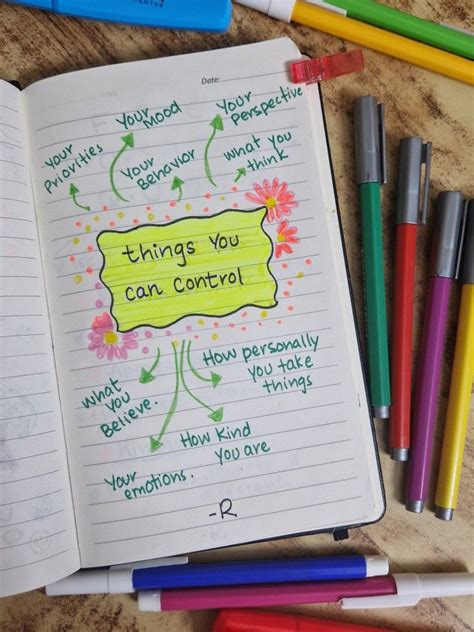 Date:
Your
Priorities
Your
Mood
Your
Behavior
Your
Perspective
what you
think
things You
can control
What
You
Believe.
How personally
You take
things
How Kind
You are
Your
emotions.
-R